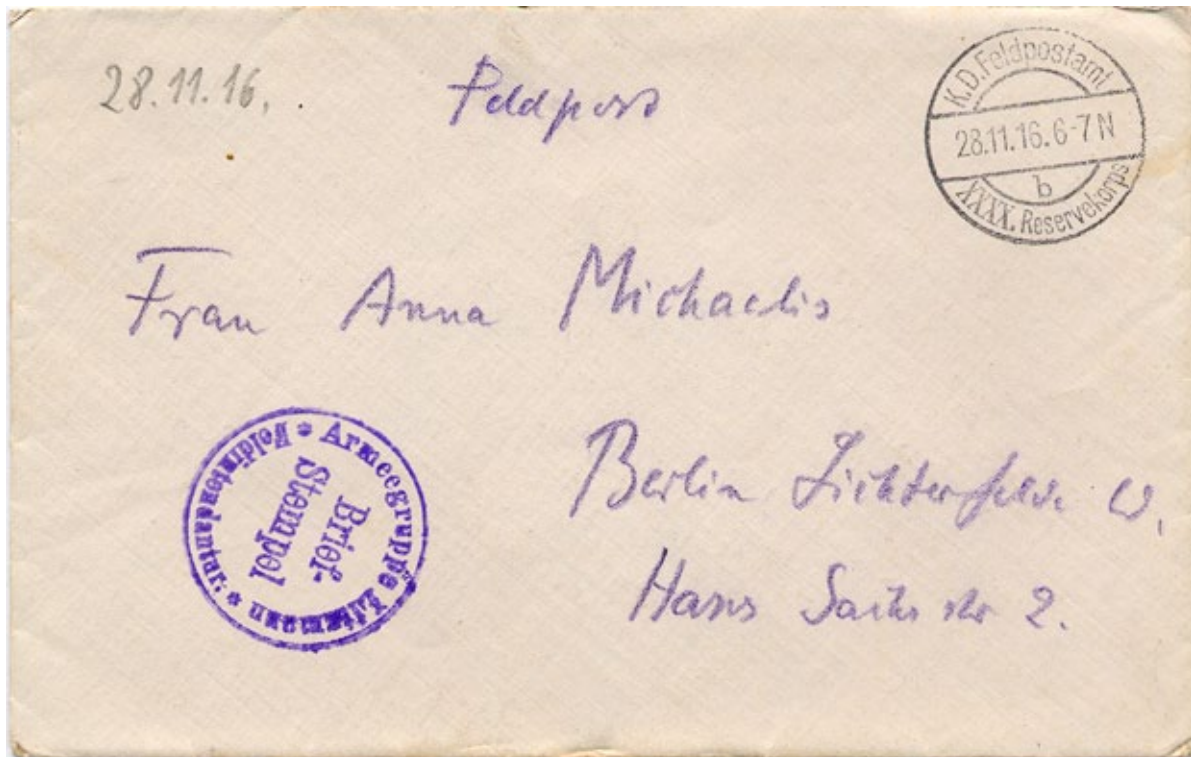 28.11.16.
Feldpost
K.D. Feldpostamt
28.11.16. 6-7 N
b
XXXX. Reservekorps
Frau Anna Michaelis
Berlin Lichterfelde W.
Hans Sachs str 2.
Armeegruppe Litzmann
Feldintendantur.
Brief-
Stempel